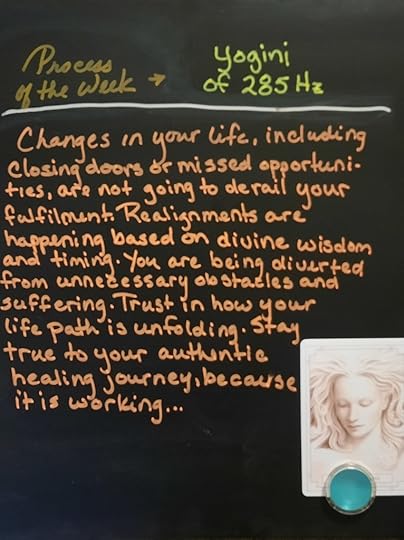 Process
of the Week →
Yogini
of 285 Hz
Changes in your life, including
closing doors or missed opportuni-
ties, are not going to derail your
fulfilment. Realignments are
happening based on divine wisdom
and timing. You are being diverted
from unnecessary obstacles and
suffering. Trust in how your
life path is unfolding. Stay
true to your authntic
healing journey, because
it is working...